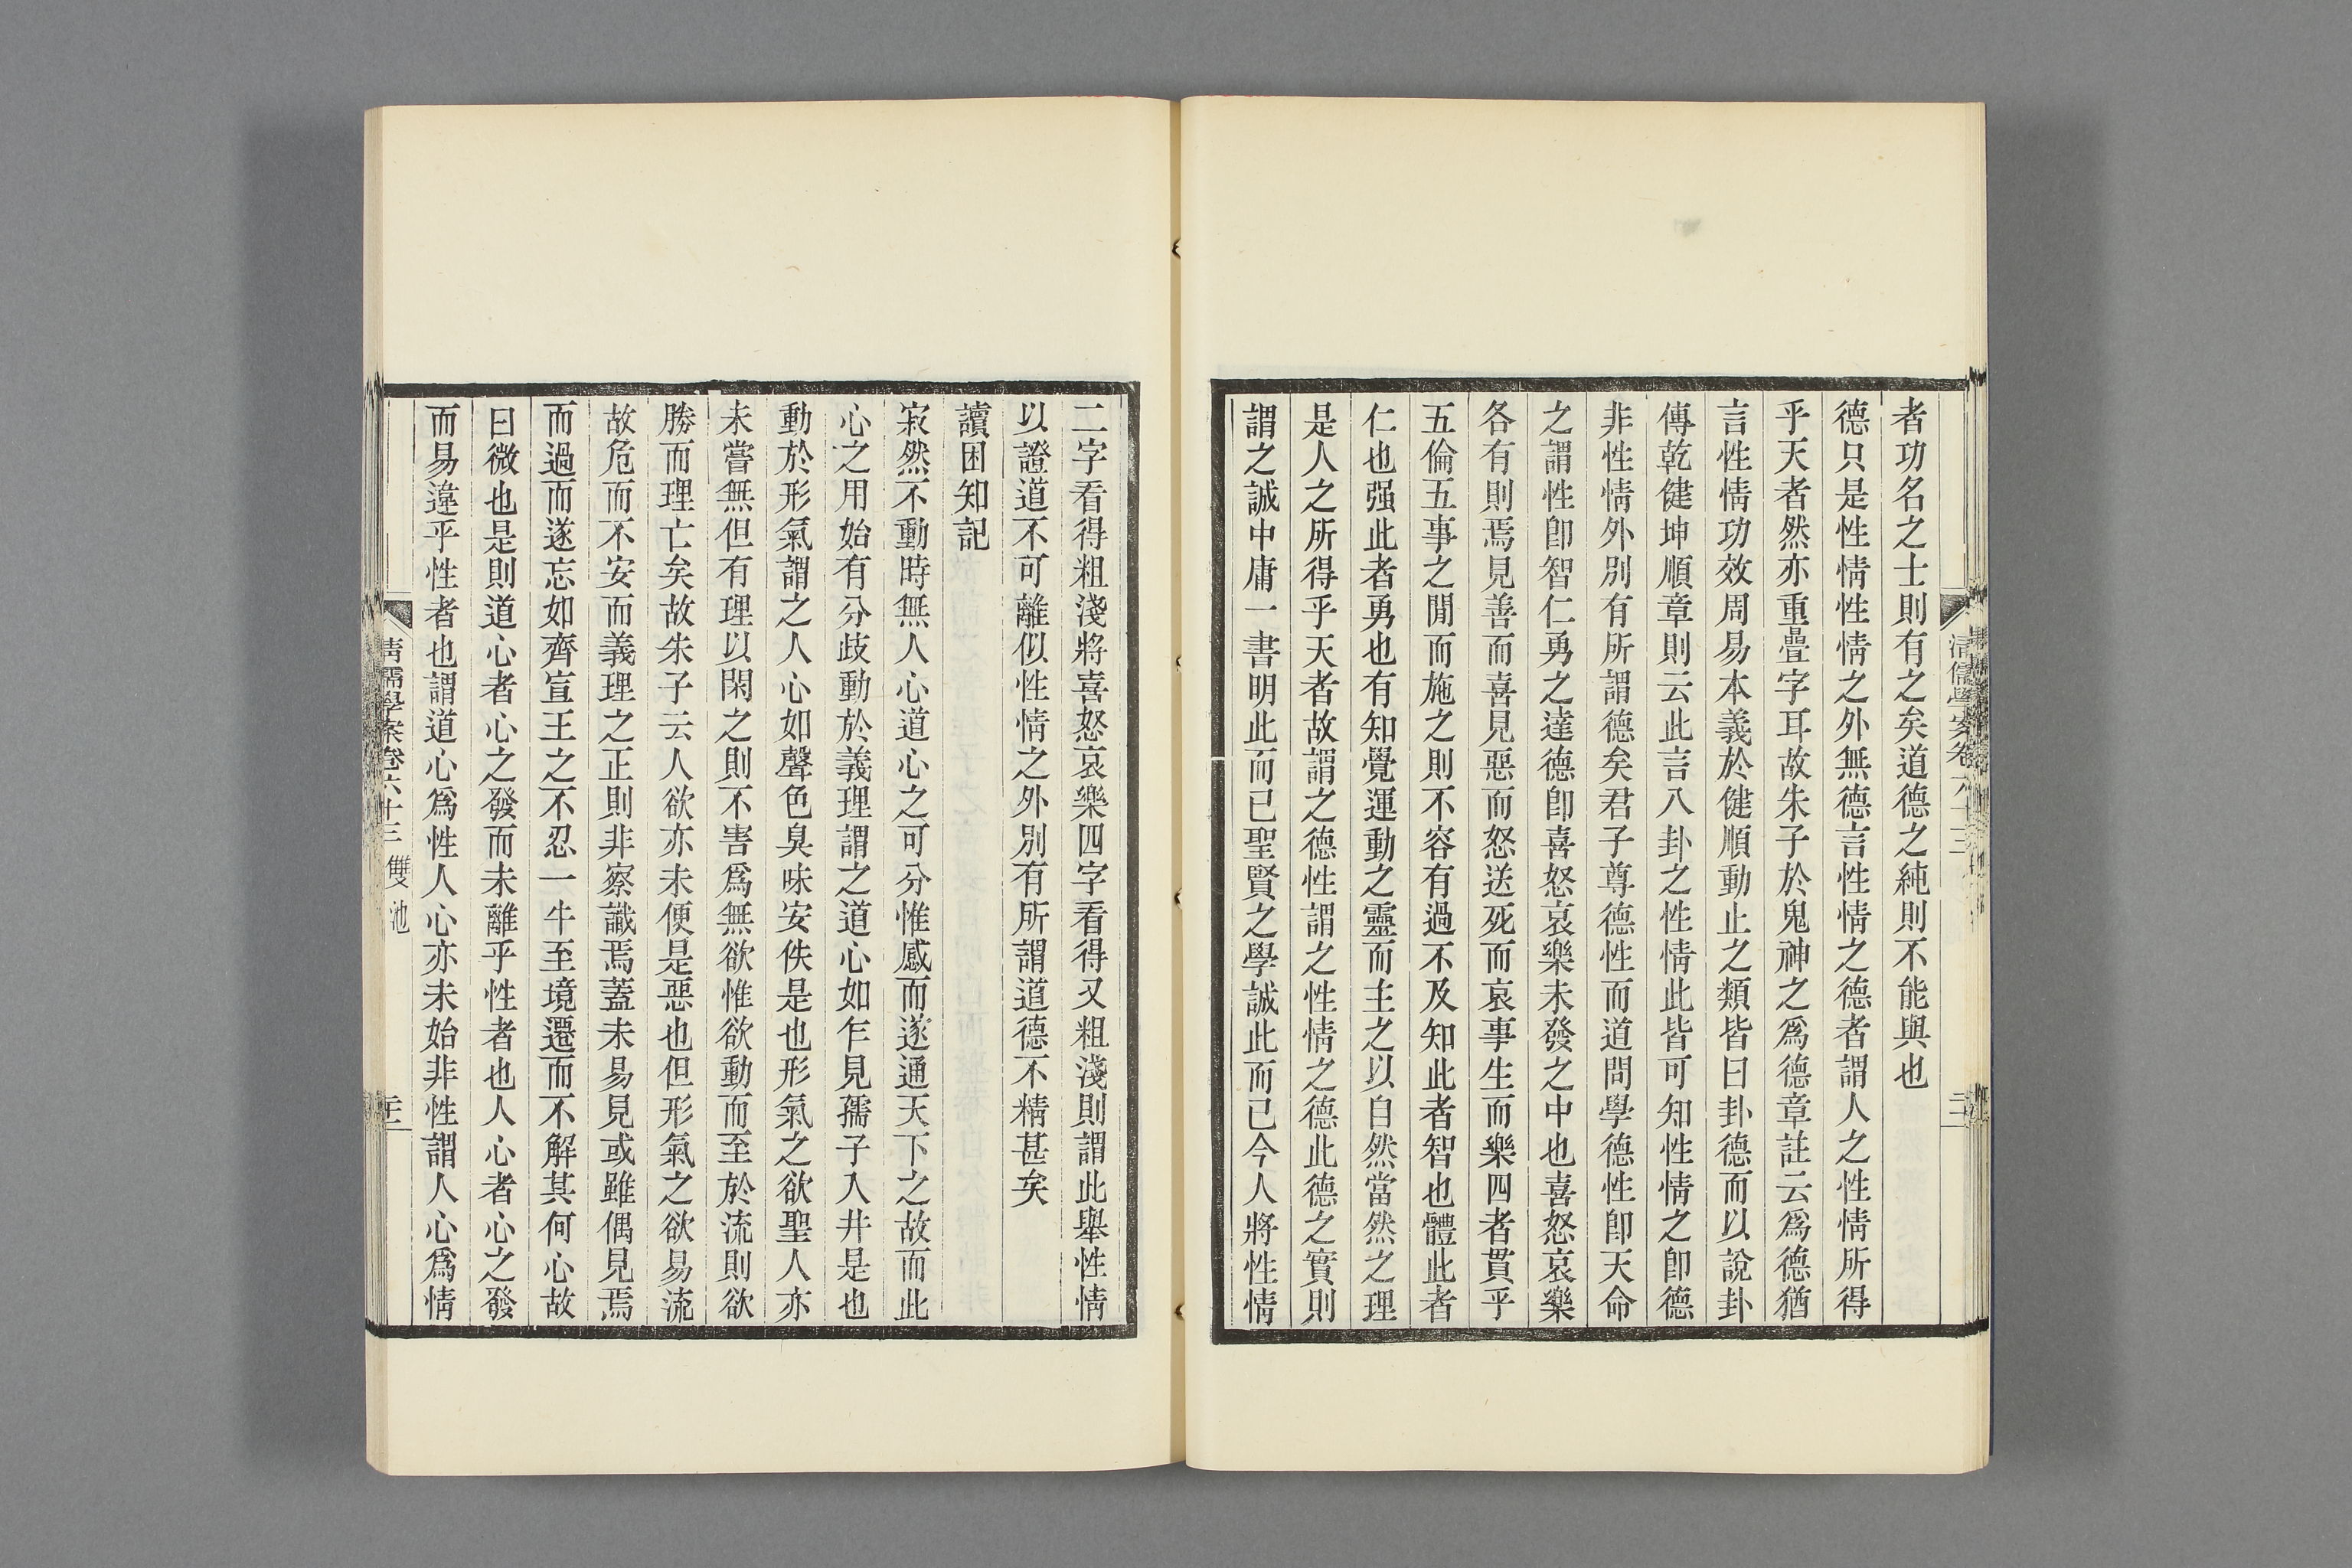 者功名之士則有之矣道德之純則不能與也
德只是性情性情之外無德言性情之德者謂人之性情所得
乎天者然亦重疊字耳故朱子於鬼神之爲德章註云爲德猶
言性情功效周易本義於健順動止之類皆曰卦德而以說卦
傳乾健坤順章則云此言八卦之性情此皆可知性情之卽德
非性情外別有所謂德矣君子尊德性而道問學德性卽天命
之謂性卽智仁勇之達德卽喜怒哀樂未發之中也喜怒哀樂
各有則焉見善而喜見惡而怒送死而哀事生而樂四者貫乎
五倫五事之閒而施之則不容有過不及知此者智也體此者
仁也强此者勇也有知覺運動之靈而主之以自然當然之理
是人之所得乎天者故謂之德性謂之性情之德此德之實則
謂之誠中庸一書明此而已聖賢之學誠此而已今人將性情
二字看得粗淺將喜怒哀樂四字看得又粗淺則謂此舉性情
以證道不可離似性情之外別有所謂道德不精甚矣
讀困知記
寂然不動時無人心道心之可分惟感而遂通天下之故而此
心之用始有分歧動於義理謂之道心如乍見孺子入井是也
動於形氣謂之人心如聲色臭味安佚是也形氣之欲聖人亦
未嘗無但有理以閑之則不害爲無欲惟欲動而至於流則欲
勝而理亡矣故朱子云人欲亦未便是惡也但形氣之欲易流
故危而不安而義理之正則非察識焉蓋未易見或雖偶見焉
而過而遂忘如齊宣王之不忍一牛至境遷而不解其何心故
曰微也是則道心者心之發而未離乎性者也人心者心之發
而易違乎性者也謂道心爲性人心亦未始非性謂人心爲情
清儒學案卷六十三 雙池